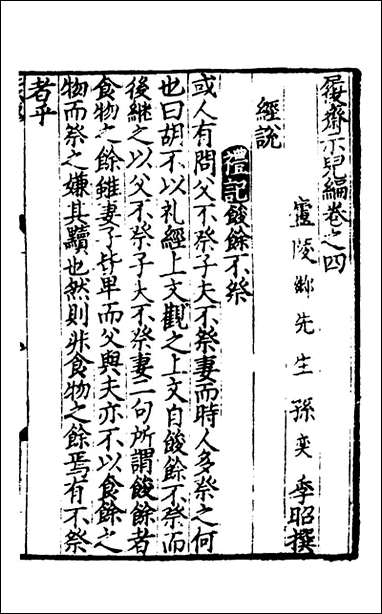 履齋示兒編卷之四
廬陵鄉先生 孫奕 季昭撰
經說
禮記 餕餘不祭
或人有問父不祭子夫不祭妻而時人多祭之何
也曰胡不以礼經上文觀之上文自餕餘不祭而
後継之以父不祭子夫不祭妻二句所謂餕餘者
食物之餘雖妻子皆卑而父與夫亦不以食餘之
物而祭之嫌其黷也然則非食物之餘焉有不祭
者乎